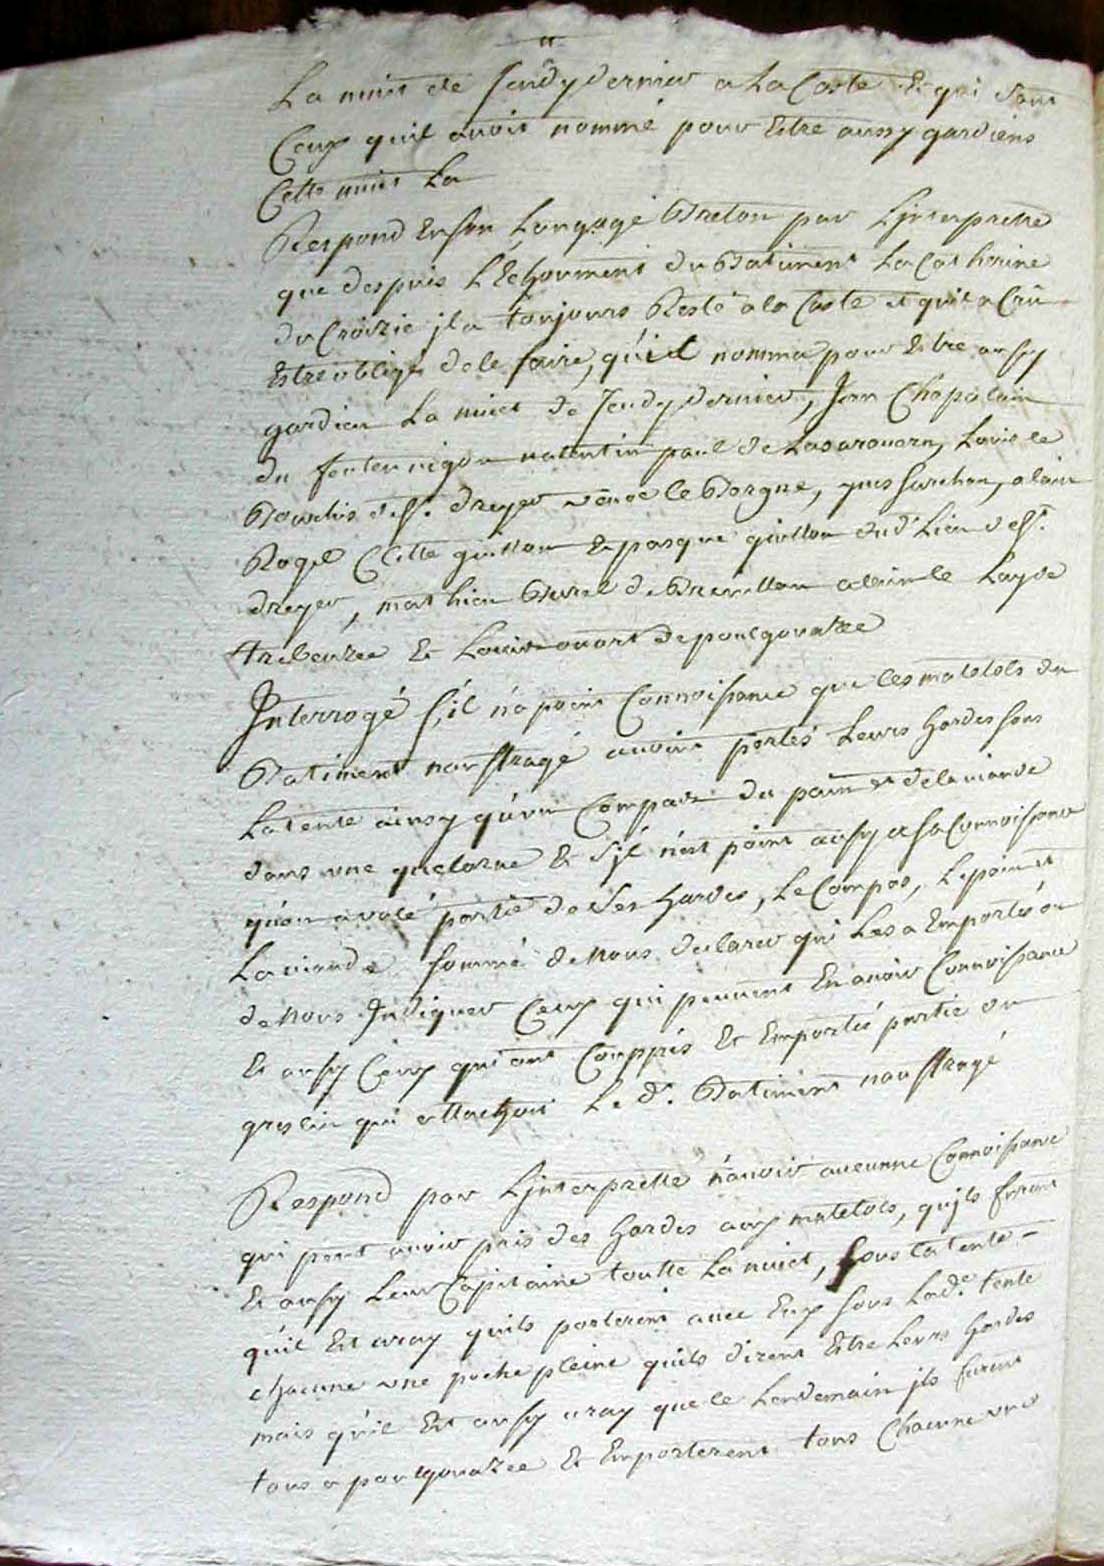 La nuit de Jeudy dernier a La Coste Et qui sont
Ceux quil avoit nommé pour Estre aussy gardiens
Cette nuit La
Respond En son Langage Breton par L'jnterprette
que despuis L'Echoument du Batiment La Catherine
du Croizic jl a toujours Resté a la Coste et quil a Crû
Estre obligé de le faire, quil nomma pour Estre aussy
gardien La nuit de Jeudy dernier, Jean Chapalain
du fenten valentin paul de Lasarouarn, Louis le
Bourhis de St. dreyer le Borgne, yves, alain
Rogel guillou Et pasque guillou dud. Lieu de St.
dreyer, mathieu Burel de alain le Lay de
trebeuzec Et Louis de poulgouazec
Interrogé s'il n'a point Connoissance que les matelots du
Batiment nauffragé avoint portés Leurs hardes sous
La tente ainsy qu'un Compas du pain et de la viande
dans une Et s'jl n'est point aussy a sa Connoissance
qu'on a volé partie de Ses hardes, Le Compas, Le pain et
La viande sommé de nous declarer qui Les a Emportés ou
de nous Indiquer Ceux qui peuvent En avoir Connoissance
Et aussy Ceux qui ont Couppés Et Emportés partie du
greslin qui attachoit Le d. Batiment nauffragé
Respond par L'jnterprette n'avoir aucunne Connoissance
qui peut avoir pris des hardes aux matelots, qujls furent
Et aussy Leur Capitaine toutte La nuict, sous la tente –
qu'il Est vray quils porterent avec Eux sous Lade. tente
chacune une poche pleine quils dirent Estre Leurs hardes
mais qu'il Est aussy vray que le Lendemain jls furent
tous a poulgouazec Et Emporterent tous Chacune une